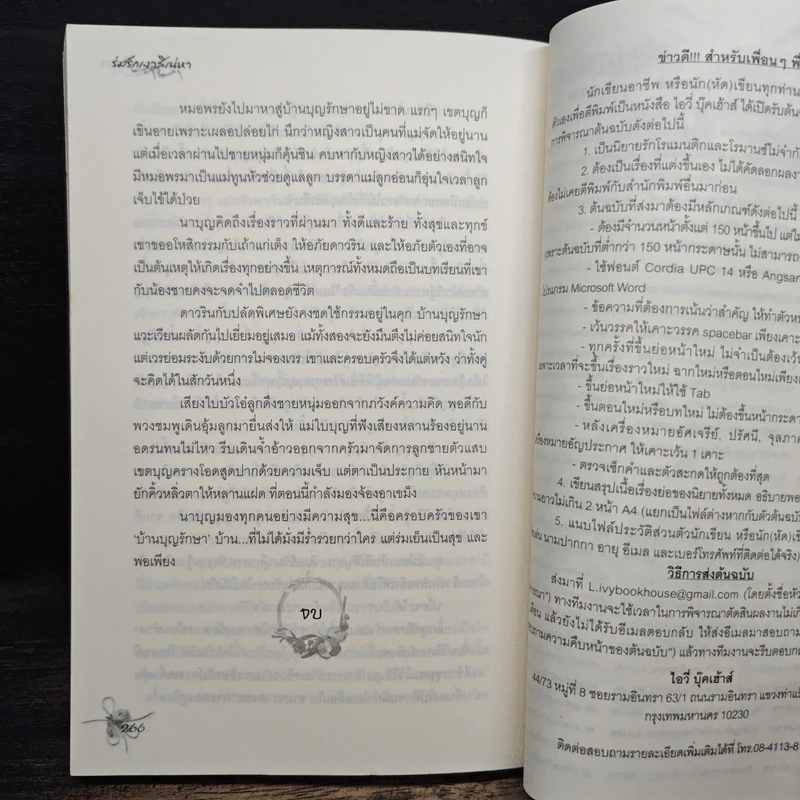 ร่มรักเงาสิเน่หา
หมอพรยังไปมาหาสู่บ้านบุญรักษาอยู่ไม่ขาด แรกๆ เขตบุญก็
เขินอายเพราะเผลอปล่อยไก่ นึกว่าหญิงสาวเป็นคนที่แม่จัดให้อยู่นาน
แต่เมื่อเวลาผ่านไปชายหนุ่มก็คุ้นชิน คบหากับหญิงสาวได้อย่างสนิทใจ
มีหมอพรมาเป็นแม่ทูนหัวช่วยดูแลลูก บรรดาแม่ลูกอ่อนก็อุ่นใจเวลาลูก
เจ็บไข้ได้ป่วย
นาบุญคิดถึงเรื่องราวที่ผ่านมา ทั้งดีและร้าย ทั้งสุขและทุกข์
เขาขออโหสิกรรมกับเถ้าแก่เต็ง ให้อภัยดาวริน และให้อภัยตัวเองที่อาจ
เป็นต้นเหตุให้เกิดเรื่องทุกอย่างขึ้น เหตุการณ์ทั้งหมดถือเป็นบทเรียนที่เขา
กับน้องชายคงจะจดจำไปตลอดชีวิต
ดาวรินกับปลัดพิเศษยังคงชดใช้กรรมอยู่ในคุก บ้านบุญรักษา
แวะเวียนผลัดกันไปเยี่ยมอยู่เสมอ แม้ทั้งสองจะยังมึนตึงไม่ค่อยสนิทใจนัก
แต่เวรย่อมระงับด้วยการไม่จองเวร เขาและครอบครัวจึงได้แต่หวัง ว่าทั้งคู่
จะคิดได้ในสักวันหนึ่ง
เสียงใบบัวโอ๋ลูกดึงชายหนุ่มออกจากภวังค์ความคิด พอดีกับ
พวงชมพูเดินอุ้มลูกมายื่นส่งให้ แม่ใบบุญที่ฟังเสียงหลานร้องอยู่นาน
อดรนทนไม่ไหว รีบเดินจ้ำอ้าวออกจากครัวมาจัดการลูกชายตัวแสบ
เขตบุญครางโอดสุดปากด้วยความเจ็บ แต่ตาเป็นประกาย หันหน้ามา
ยักคิ้วหลิ่วตาให้หลานแฝด ที่ตอนนี้กำลังมองจ้องอาเขม็ง
นาบุญมองทุกคนอย่างมีความสุข...นี่คือครอบครัวของเขา
‘บ้านบุญรักษา’ บ้าน...ที่ไม่ได้มั่งมีร่ำรวยกว่าใคร แต่ร่มเย็นเป็นสุข และ
พอเพียง
จบ
266
ข่าวดี!!! สำหรับเพื่อนๆ
นักเขียนอาชีพ หรือนัก(หัด)เขียนทุกท่าน
ตัวเองเพื่อตีพิมพ์เป็นหนังสือ ไอวี่ บุ๊คเฮ้าส์ ได้เปิดรับต้น
การพิจารณาต้นฉบับดังต่อไปนี้
1. เป็นนิยายรักโรแมนติกและโรมานซ์ไม่จำกัด
2. ต้องเป็นเรื่องที่แต่งขึ้นเอง ไม่ได้คัดลอกผลงาน
ต้องไม่เคยตีพิมพ์กับสำนักพิมพ์อื่นมาก่อน
3. ต้นฉบับที่ส่งมาต้องมีหลักเกณฑ์ดังต่อไปนี้
- ต้องมีจำนวนหน้าตั้งแต่ 150 หน้าขึ้นไป แต่ไม่
เพราะต้นฉบับที่ต่ำกว่า 150 หน้ากระดาษนั้น ไม่สามารถ
- ใช้ฟอนต์ Cordia UPC 14 หรือ Angsan
โปรแกรม Microsoft Word
- ข้อความที่ต้องการเน้นว่าสำคัญ ให้ทำตัวหน
- เว้นวรรคให้เคาะวรรค spacebar เพียงเคาะ
- ทุกครั้งที่ขึ้นย่อหน้าใหม่ ไม่จำเป็นต้องเว้น
เพราะเวลาที่จะขึ้นเรื่องราวใหม่ ฉากใหม่หรือตอนใหม่เพียง
- ขึ้นย่อหน้าใหม่ให้ใช้ Tab
- ขึ้นตอนใหม่หรือบทใหม่ ไม่ต้องขึ้นหน้ากระดา
- หลังเครื่องหมายอัศเจรีย์, ปรัศนี, จุลภาค
เครื่องหมายอัญประกาศ ให้เคาะเว้น 1 เคาะ
- ตรวจเช็กคำและตัวสะกดให้ถูกต้องที่สุด
4. เขียนสรุปเนื้อเรื่องย่อของนิยายทั้งหมด อธิบายพอ
ความยาวไม่เกิน 2 หน้า A4 (แยกเป็นไฟล์ต่างหากกับตัวต้นฉบับ
5. แนบไฟล์ประวัติส่วนตัวนักเขียน หรือนัก(หัด)เขีย
นามปากกา อายุ อีเมล และเบอร์โทรศัพท์ที่ติดต่อได้จริง)
วิธีการส่งต้นฉบับ
ส่งมาที่ L.ivybookhouse@gmail.com (โดยตั้งชื่อหัว
ทางทีมงานจะใช้เวลาในการพิจารณาตัดสินผลงานไม่เกิ
เดือน แล้วยังไม่ได้รับอีเมลตอบกลับ ให้ส่งอีเมลมาสอบถาม
ความคืบหน้าของต้นฉบับ”) แล้วทางทีมงานจะรีบตอบก
ไอวี่ บุ๊คเฮ้าส์
44/73 หมู่ที่ 8 ซอยรามอินทรา 63/1 ถนนรามอินทรา แขวงท่าแร้
กรุงเทพมหานคร 10230
ติดต่อสอบถามรายละเอียดเพิ่มเติมได้ที่ โทร.08-4113-8